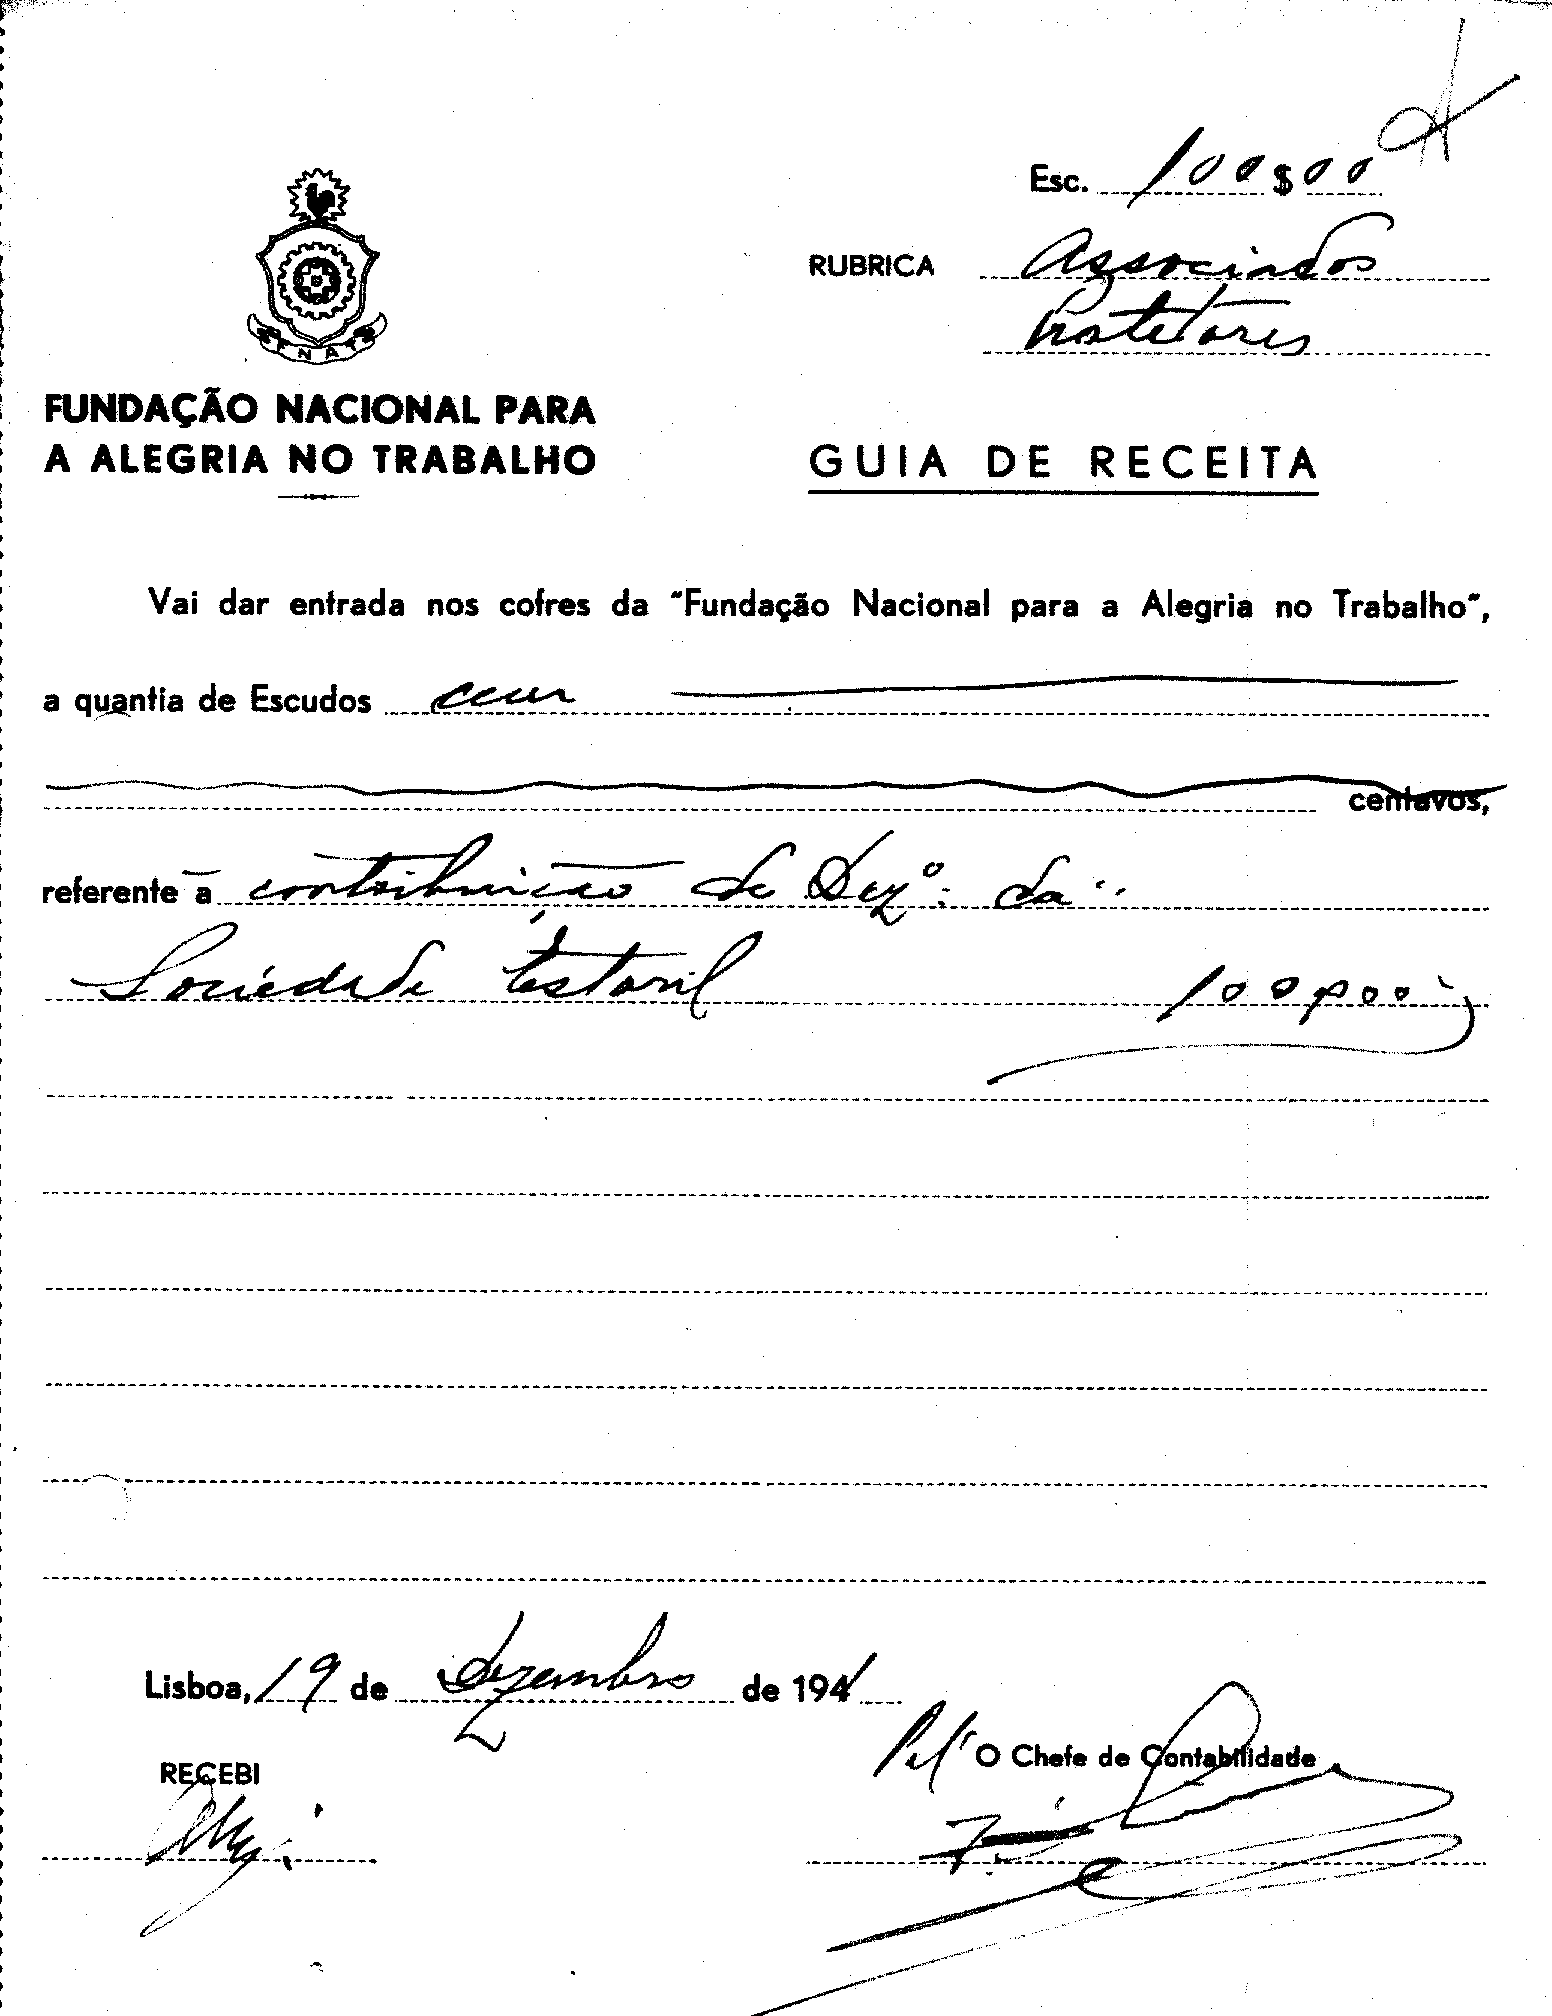 Esc. 100$00
RUBRICA Associados
Protetores
FNAT
FUNDAÇÃO NACIONAL PARA
A ALEGRIA NO TRABALHO
GUIA DE RECEITA
Vai dar entrada nos cofres da "Fundação Nacional para a Alegria no Trabalho",
a quantia de Escudos cem
centavos,
referente à contribuição de Dezº. da
Sociedade Estoril 100$00
Lisboa, 19 de Dezembro de 1941
Pel' O Chefe de Contabilidade
RECEBI